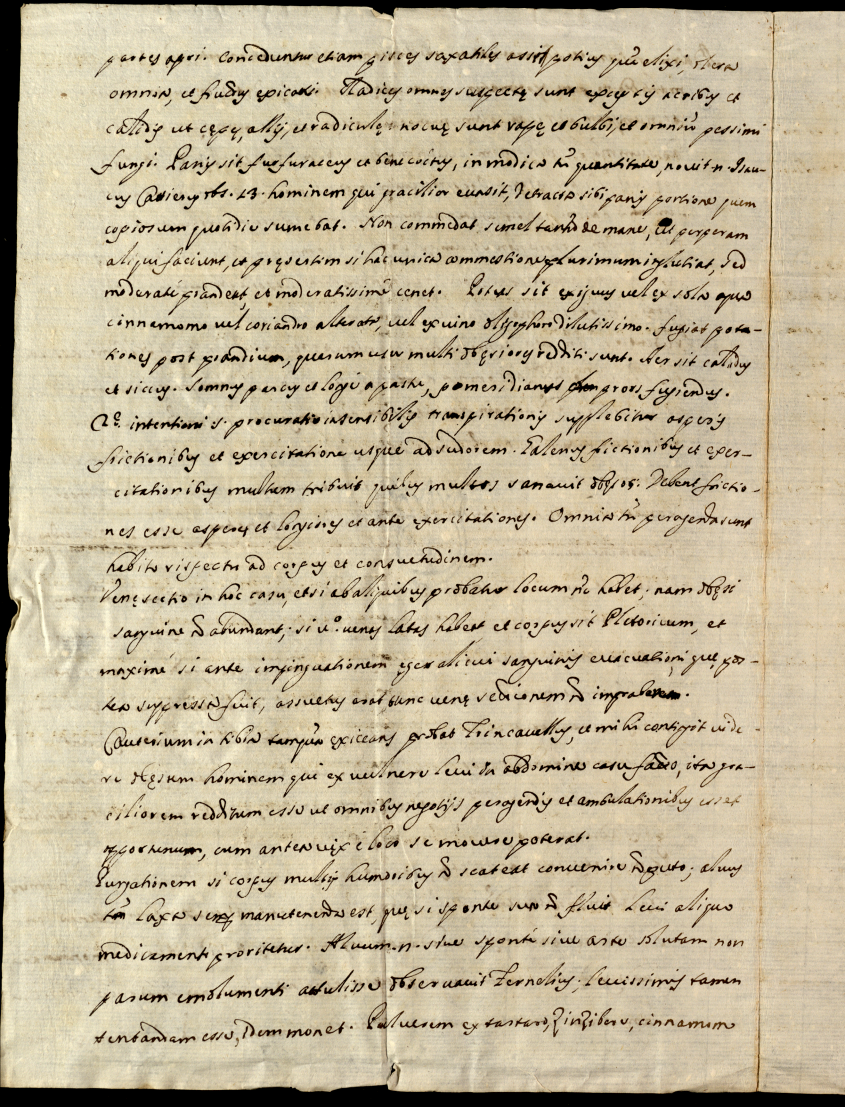 partes apri. Conceduntur etiam pisces saxatiles assi potius quã elixi, olera
omnia, et fructus exiccati. Radices omnes suspectę sunt exceptis acribus et
calidis ut cępę, allij, et radiculę; nocuę sunt rapę et bulbi, et omniũ pessimi
fungi. Panis sit furfuraceus et bene coctus, in modica tñ quantitate, novit .n. Isau-
cus obs. 13. hominem qui gracilior evasit, detracta sibi panis portione quem
copiosum quotidie sumebat. Non commedat semel tantũ de mane, ut perperam
aliqui faciunt, et pręsertim si hac unica commestione plurimum inglutiat, sed
moderaté prandeat, et moderatissimé cenet. Potus sit exiguus vel ex sola aqua
cinnamomo vel coriandro alterata, vel ex vino oligophoro dilutissimo. fugiat pota-
tiones post prandium, quarum usu multi obęsiores redditi sunt. Aer sit calidus
et siccus. Somnus parcus et longé a pastu, pomeridianus prors fugiendus.
2ę. intentioni s. procuratio insensibilis transpirationis supplebitur asperis
frictionibus et exercitatione usque ad sudorem. Galenus frictionibus et exer-
citationibus multum tribuit quibus multos sanavit obęsos. Debent frictio-
nes esse asperę et longiores et ante exercitationes. Omnia tñ peragenda sunt
habito respectu ad corpus et consuetudinem.
Venę sectio in hoc casu, etsi ab aliquibus probatur locum nõ habet; nam obęsi
sanguine nõ abundant; si v.º venas latas habeat et corpus sit Pletoricum, et
maximé si ante impinguationem ęger alicui sanguinis evacuationi, quę pos-
tea suppressa fuit, assuetus erat, tunc venę sectionem nõ improbarem.
Cauterium in tibia exiccans probat Trincavellus, et mihi contigit vide-
re obęsum hominem qui ex vulnere levi in abdomine casu facto, ita gra-
ciliorem redditum esse ut omnibus negotijs peragendis et ambulationibus esset
opportunum, cum antea vix é loco se movere poterat.
Purgationem si corpus multis humoribus nõ scateat convenire nõ puto; alvus
tñ laxa semp manutenenda est, quę si sponte sua nõ fluit levi aliquo
medicamento proritetur. Alvum .n. sive sponté sive arte solutam non
parum emolumenti attulisse observavit Fernelius; levissimis tamen
tentandam esse, idem monet. Pulverem ex tartaro, Zinzibere, cinnamomo